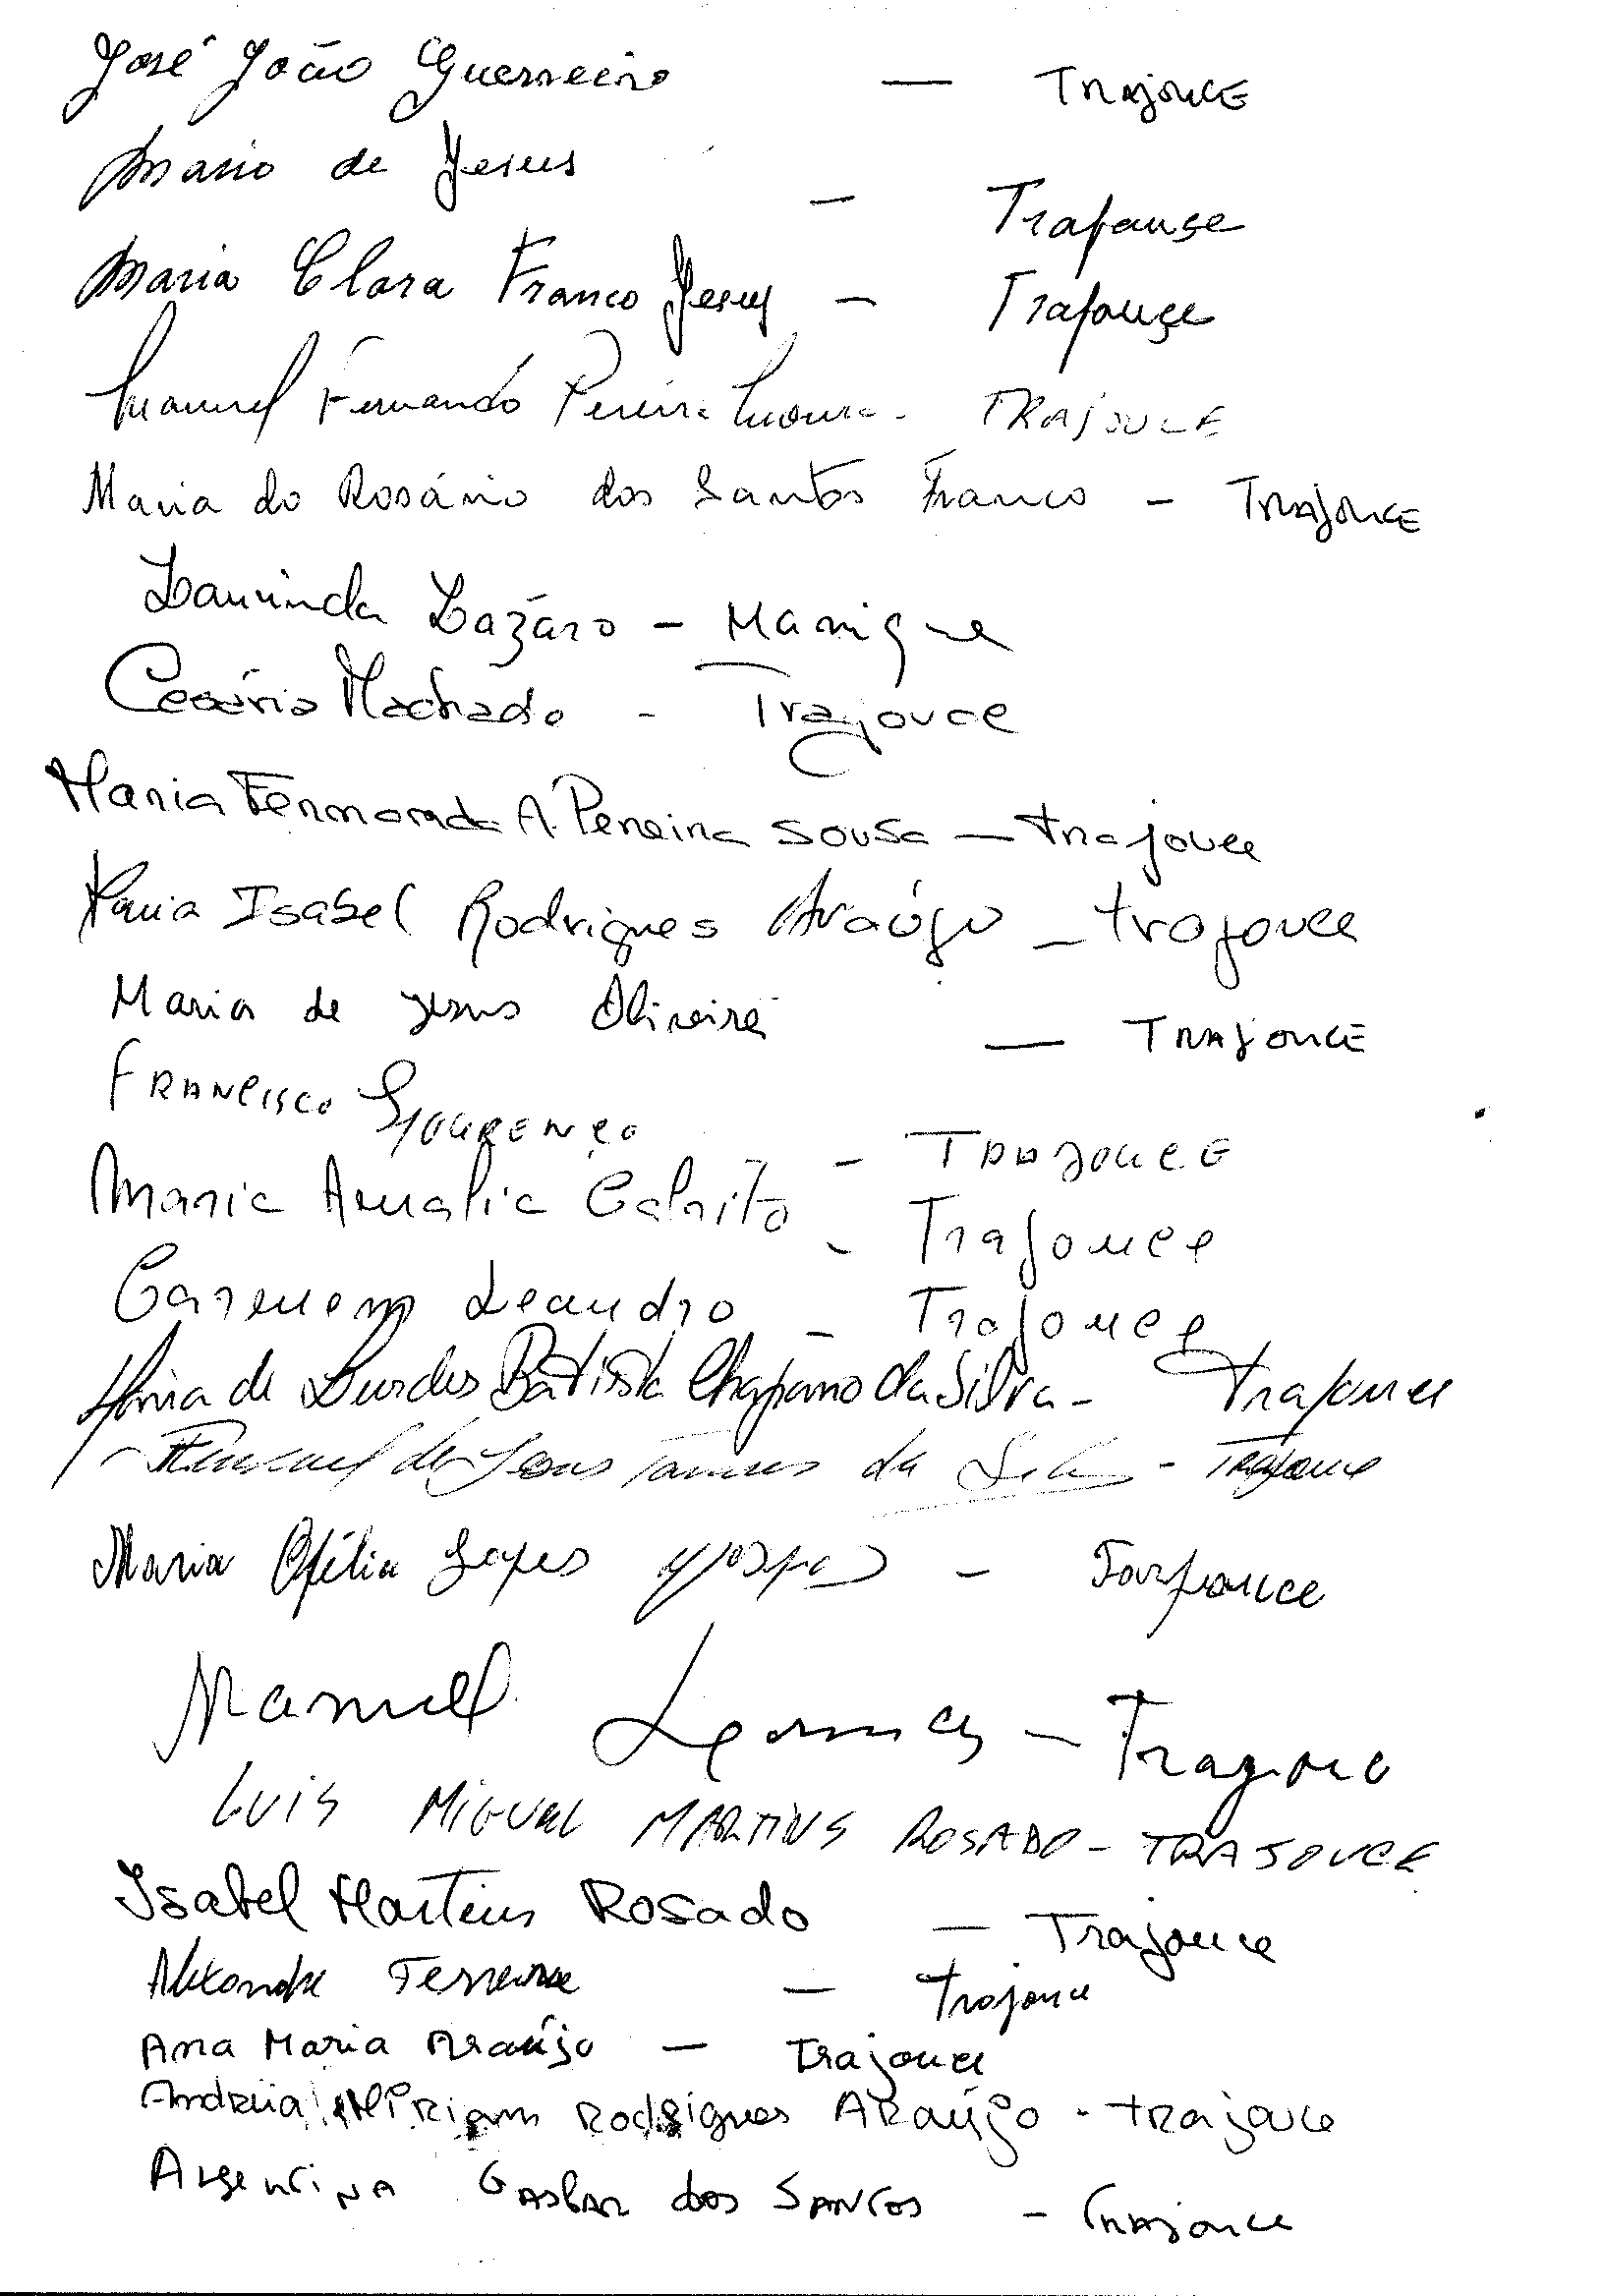 José João Guerreiro — TRAJOUCE
Mario de Jesus — Trajouçe
Maria Clara Franco Jesus — Trajouçe
Manuel Fernando Pereira Moura - TRAJOUCE
Maria do Rosário dos Santos Franco - TRAJOUCE
Laurinda Lázaro - Manique
Cesário Machado - Trajouce
Maria Fernanda A. Pereira Sousa — Trajouce
Maria Isabel Rodrigues Araújo - Trajouce
Maria de Jesus Oliveira — TRAJOUCE
FRANCISCO LOURENÇO - TRAJOUCE
Maria Amalia Cabrito - Trajouce
Carmem Leandro - Trajouce
Maria de Lurdes Batista Chaparro da Silva - Trajouce
Manuel de Jesus da Silva - Trajouce
Maria Ofélia Lopes - Tarjouce
Manuel - Trajouce
LUIS MIGUEL MARTINS ROSADO - TRAJOUCE
Isabel Martins Rosado — Trajouce
Alexandre Ferreira — Trajouce
Ana Maria Araújo — Trajouce
Andreia Miriam Rodrigues Araújo - trajouce
Argentina Gaspar dos Santos - Trajouce